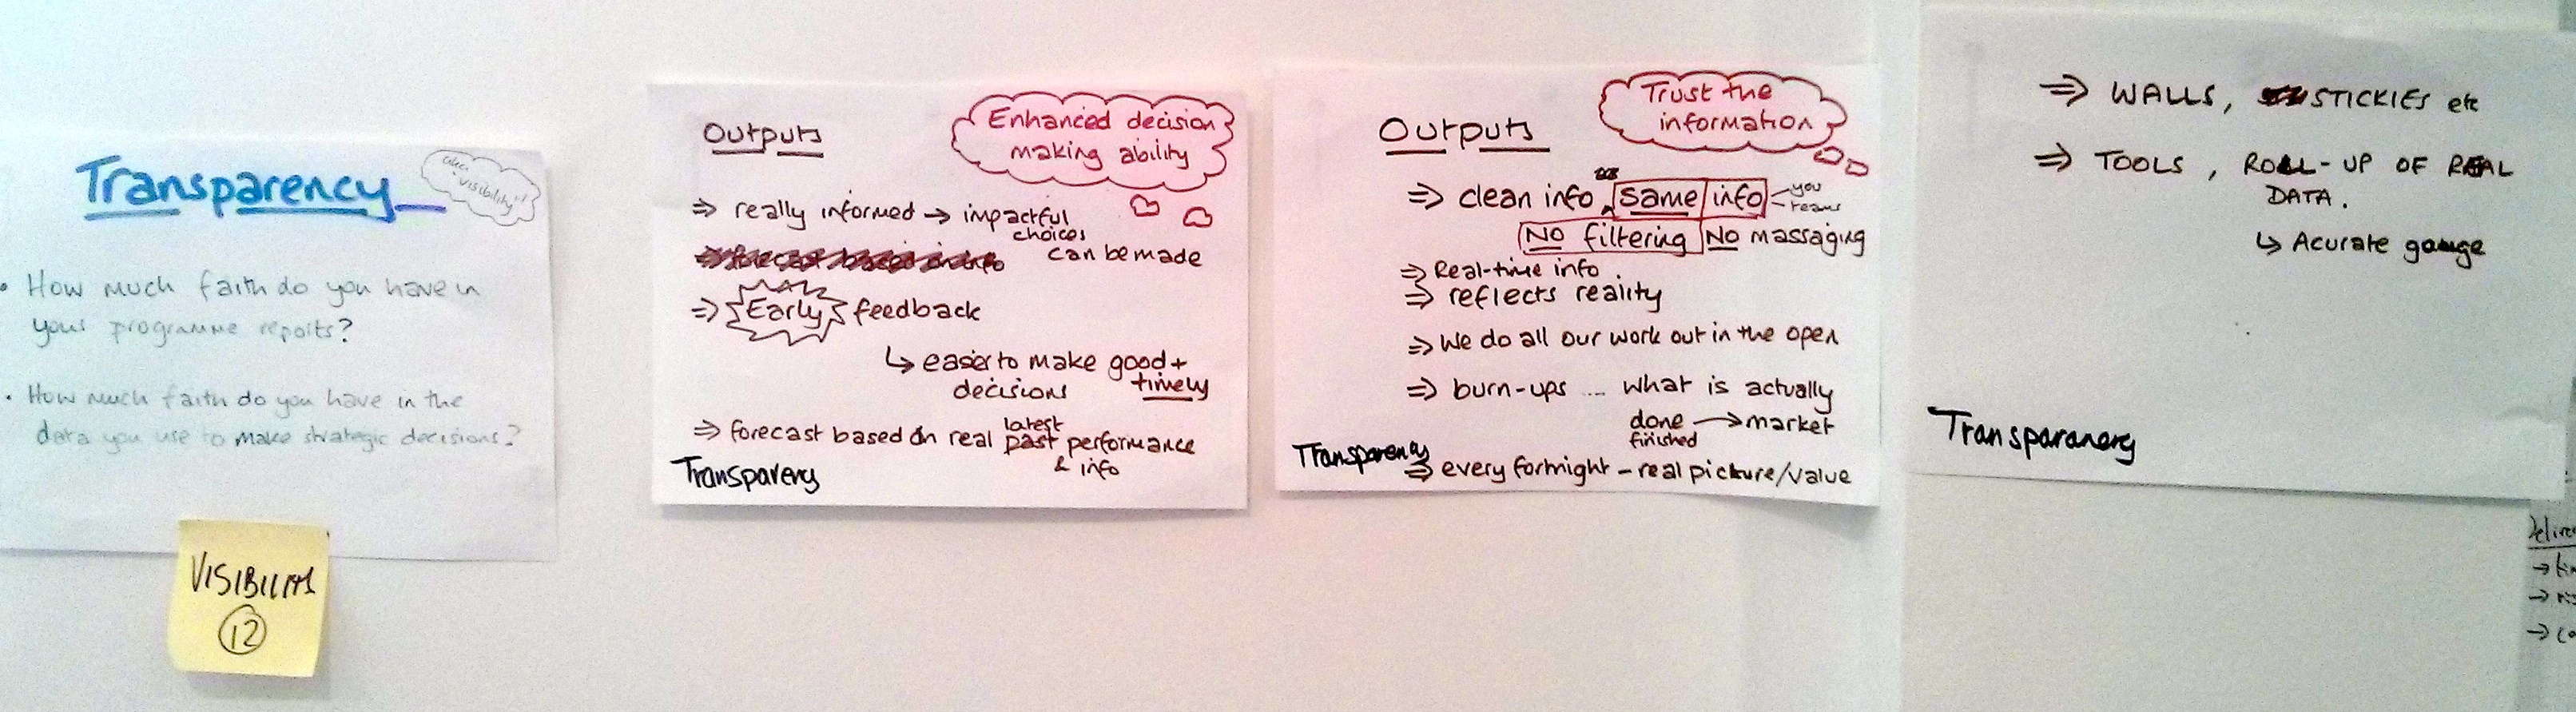 Transparency
"visibility"
• How much faith do you have in
your programme reports?
• How much faith do you have in the
data you use to make strategic decisions?
VISIBILITY
12
Outputs
Enhanced decision
making ability
⇒ really informed → impactful
choices
can be made
⇒ Early feedback
↳ easier to make good +
timely
decisions
latest
⇒ forecast based on real past performance
& info
Transparency
Outputs
Trust the
information
⇒ clean info same info
you
teams
NO filtering NO massaging
⇒ Real-time info
⇒ reflects reality
⇒ We do all our work out in the open
⇒ burn-ups .... what is actually
done → market
finished
⇒ every fortnight - real picture/value
Transparency
⇒ WALLS, STICKIES etc
⇒ TOOLS, ROLL-UP OF REAL
DATA.
↳ Acurate gauge
Transparanery